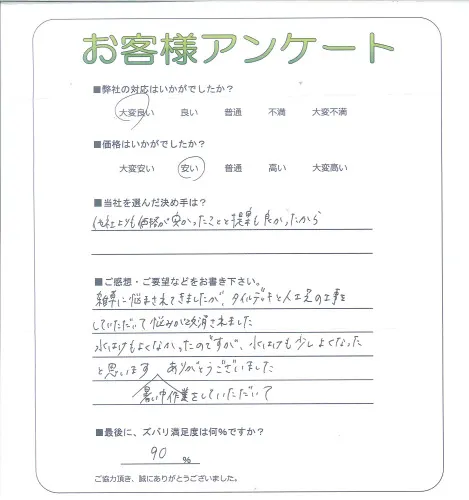 お客様アンケート
■弊社の対応はいかがでしたか?
大変良い 良い 普通 不満 大変不満
■価格はいかがでしたか?
大変安い 安い 普通 高い 大変高い
■当社を選んだ決め手は?
他社よりも価格が良かったことと提案も良かったから
■ご感想・ご要望などをお書き下さい。
雑草に悩まされてきましたが、タイルデッキと人工芝の工事を
していただいて悩みが改消されました
水はけもよくなかったのですが、水はけも少しよくなった
と思います ありがとうございました
暑い中作業をしていただいて
■最後に、ズバリ満足度は何%ですか?
90 %
ご協力頂き、誠にありがとうございました。